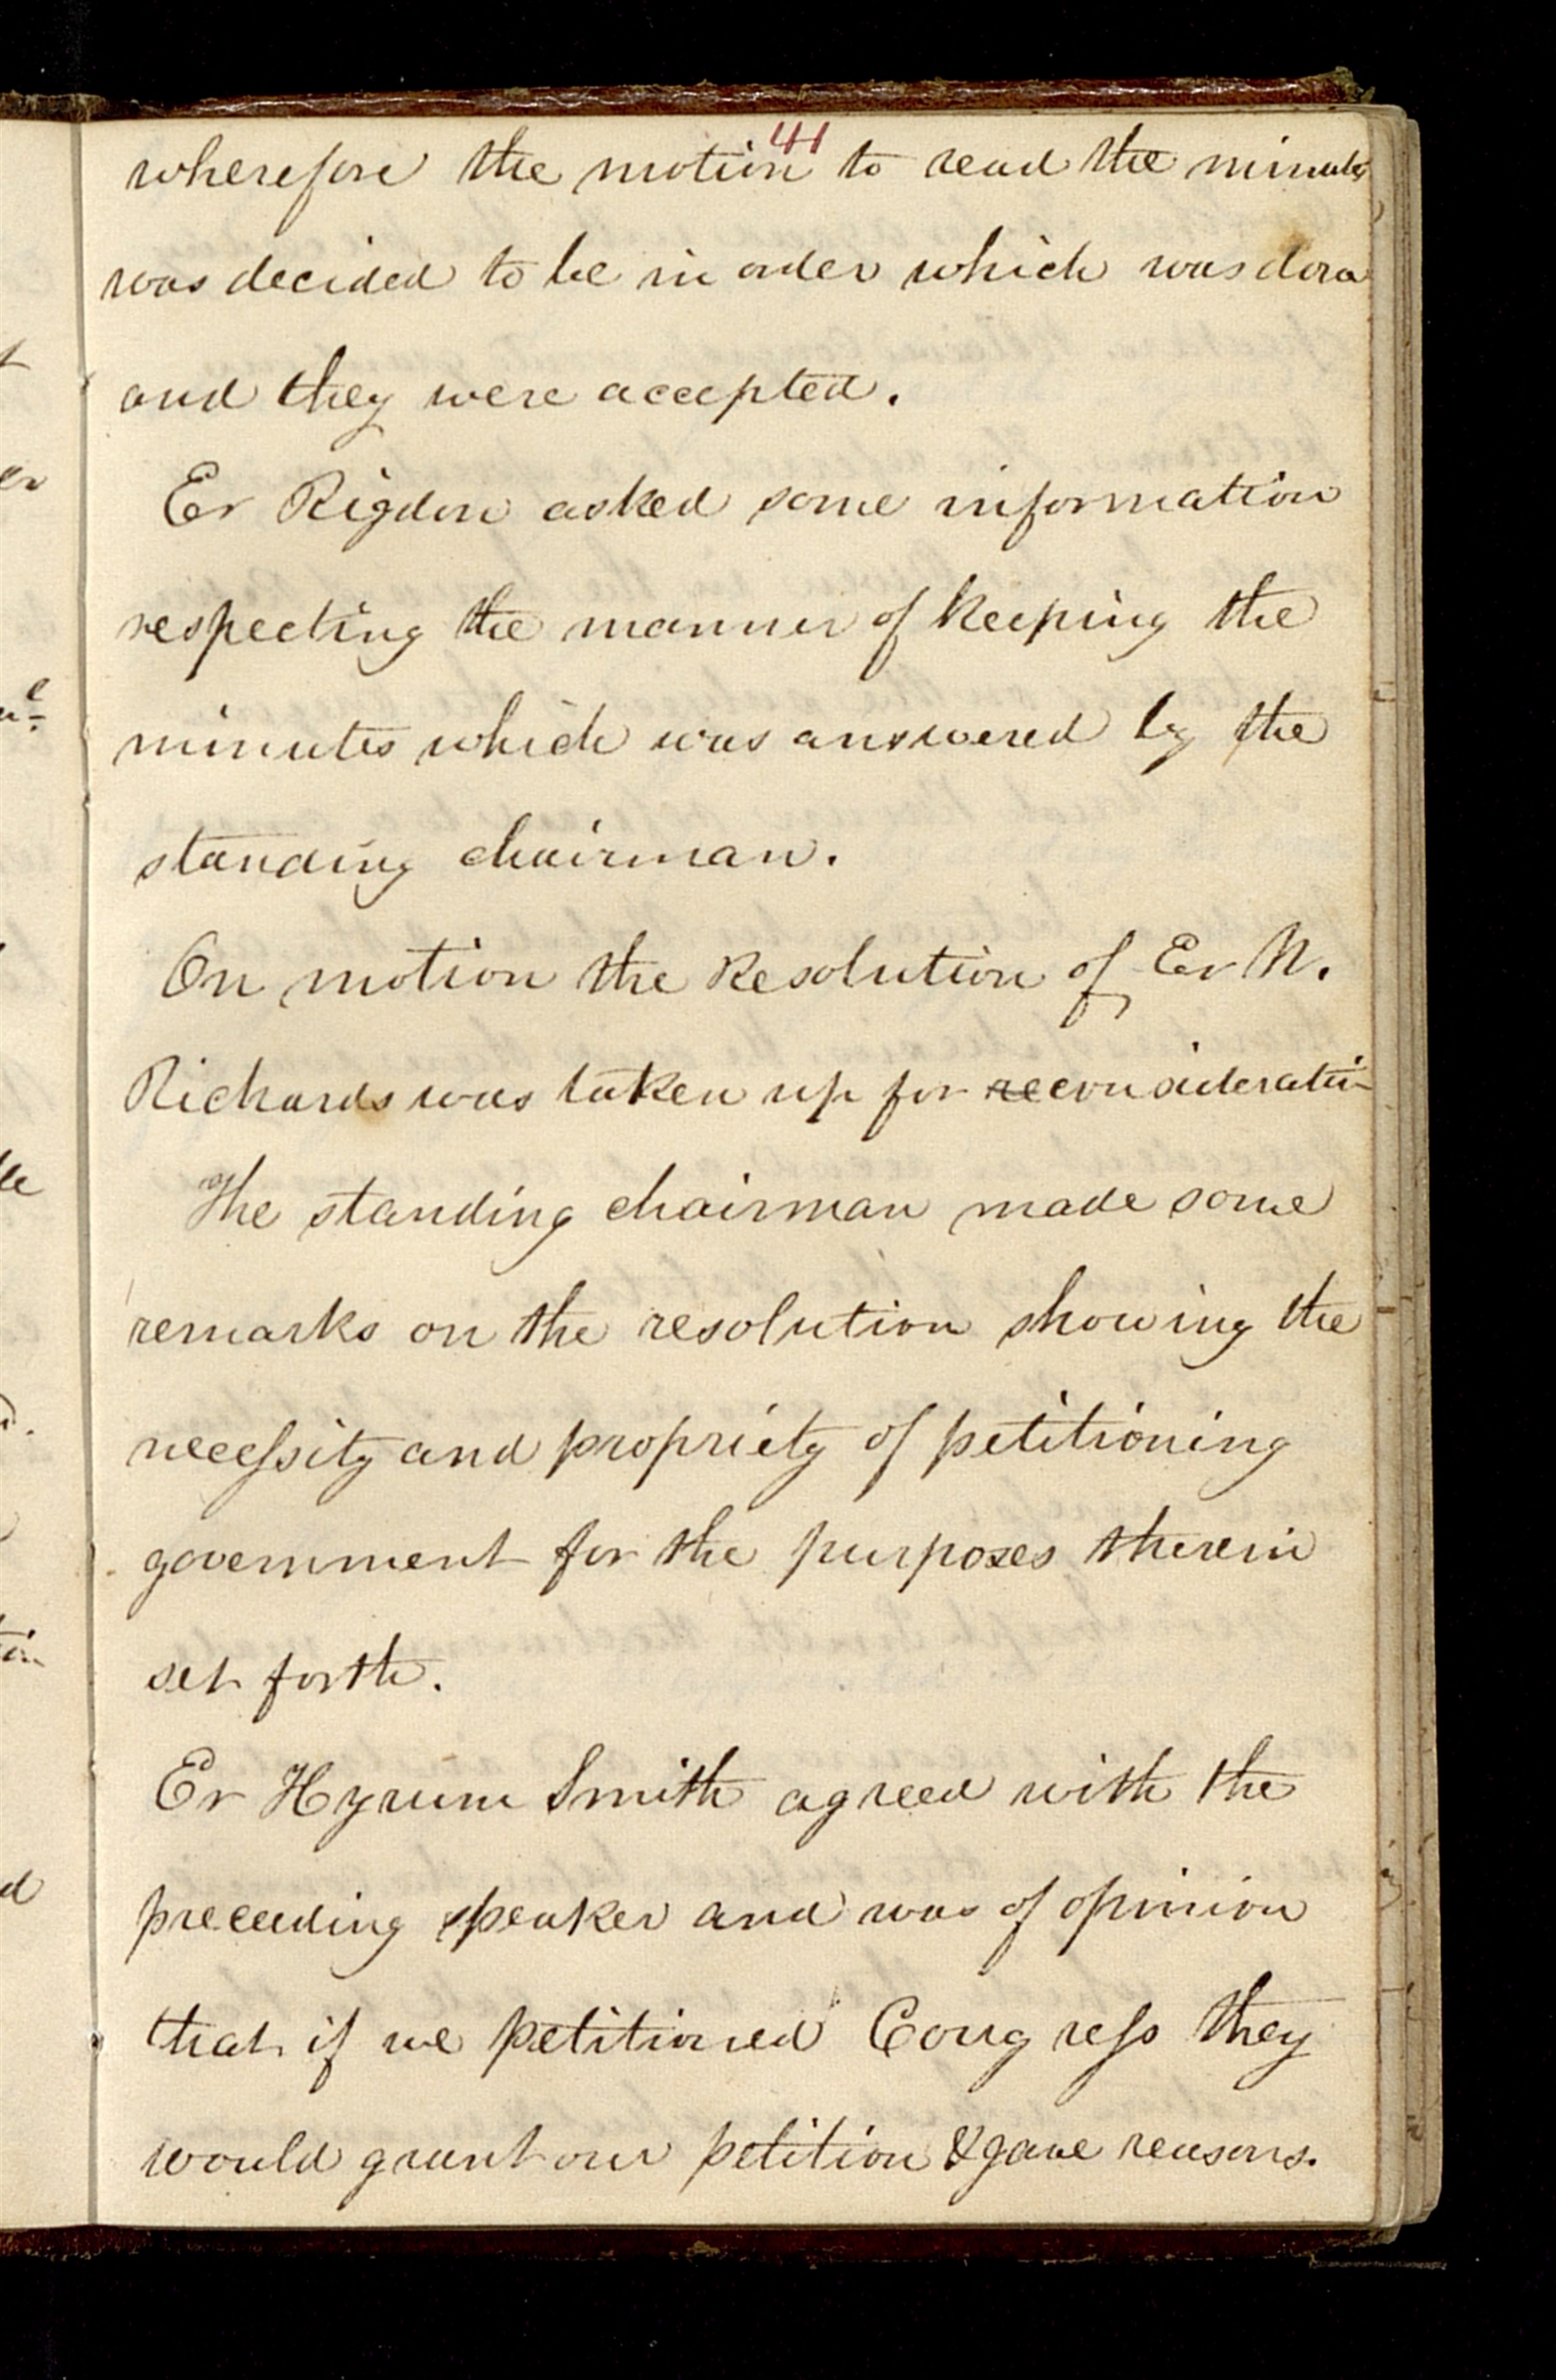 41
wherefore the motion to read the minutes
was decided to be in order which was done
and they were accepted.
Er Rigdon asked some information
respecting the manner of keeping the
minutes which was answered by the
standing chairman.
On motion the Resolution of Er W.
Richards was taken up for reconsideration
The standing chairman made some
remarks on the resolution showing the
necessity and propriety of petitioning
government for the purposes therein
set forth.
Er Hyrum Smith agreed with the
preceeding speaker and was of opinion
that if we petitioned Congress they
would grant our petition & gave reasons.